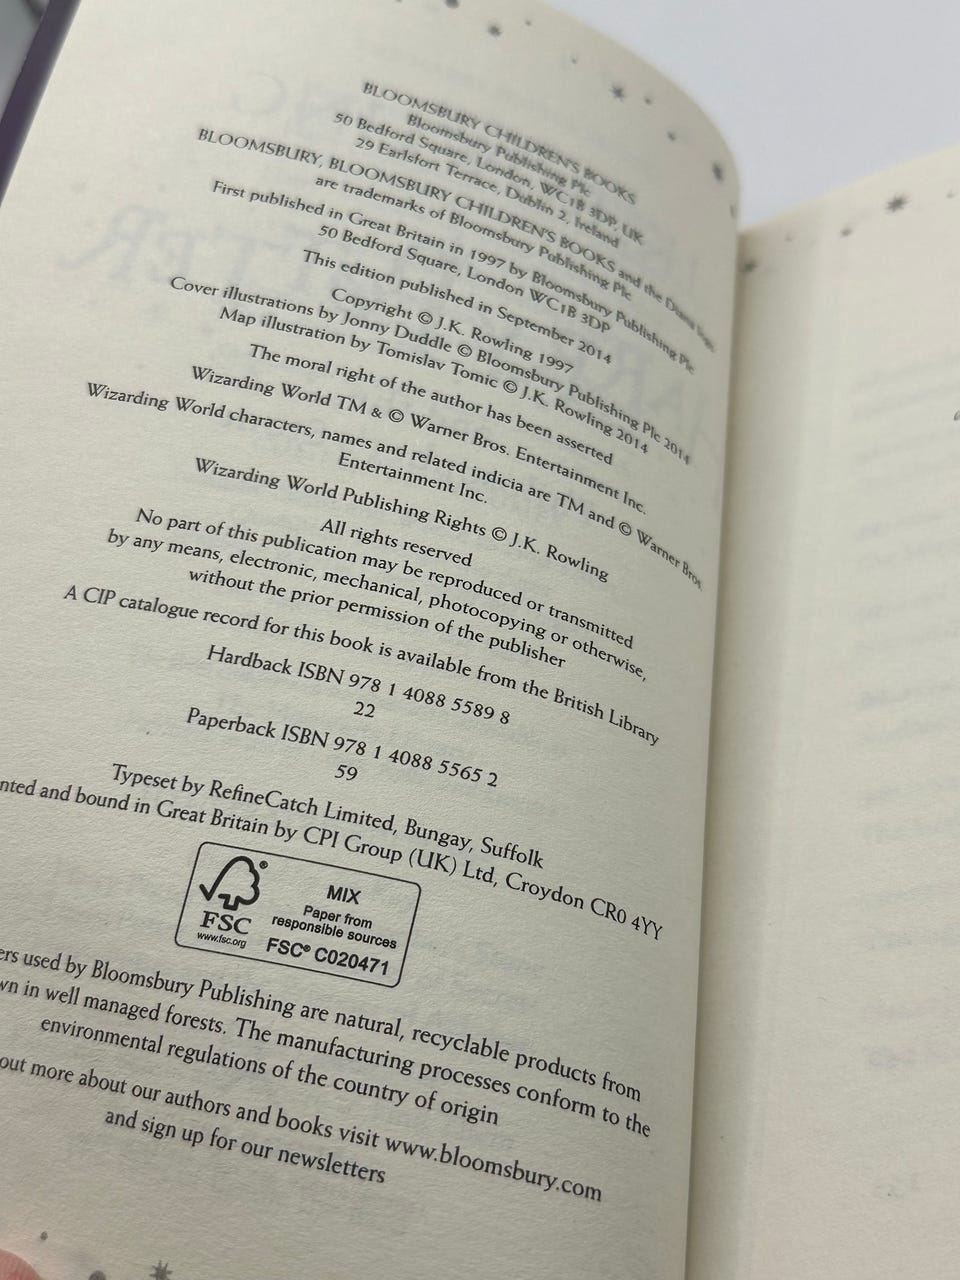 BLOOMSBURY CHILDREN'S BOOKS
Bloomsbury Publishing Plc
50 Bedford Square, London, WC1B 3DP, UK
29 Earlsfort Terrace, Dublin 2, Ireland
BLOOMSBURY, BLOOMSBURY CHILDREN'S BOOKS and the Diana logo
are trademarks of Bloomsbury Publishing Plc
First published in Great Britain in 1997 by Bloomsbury Publishing Plc
50 Bedford Square, London WC1B 3DP
This edition published in September 2014
Copyright © J.K. Rowling 1997
Cover illustrations by Jonny Duddle © Bloomsbury Publishing Plc 2014
Map illustration by Tomislav Tomic © J.K. Rowling 2014
The moral right of the author has been asserted
Wizarding World TM & © Warner Bros. Entertainment Inc.
Wizarding World characters, names and related indicia are TM and © Warner Bros.
Entertainment Inc.
Wizarding World Publishing Rights © J.K. Rowling
All rights reserved
No part of this publication may be reproduced or transmitted
by any means, electronic, mechanical, photocopying or otherwise,
without the prior permission of the publisher
A CIP catalogue record for this book is available from the British Library
Hardback ISBN 978 1 4088 5589 8
22
Paperback ISBN 978 1 4088 5565 2
59
Typeset by RefineCatch Limited, Bungay, Suffolk
nted and bound in Great Britain by CPI Group (UK) Ltd, Croydon CR0 4YY
FSC
www.fsc.org
MIX
Paper from
responsible sources
FSC® C020471
ers used by Bloomsbury Publishing are natural, recyclable products from
wn in well managed forests. The manufacturing processes conform to the
environmental regulations of the country of origin
out more about our authors and books visit www.bloomsbury.com
and sign up for our newsletters